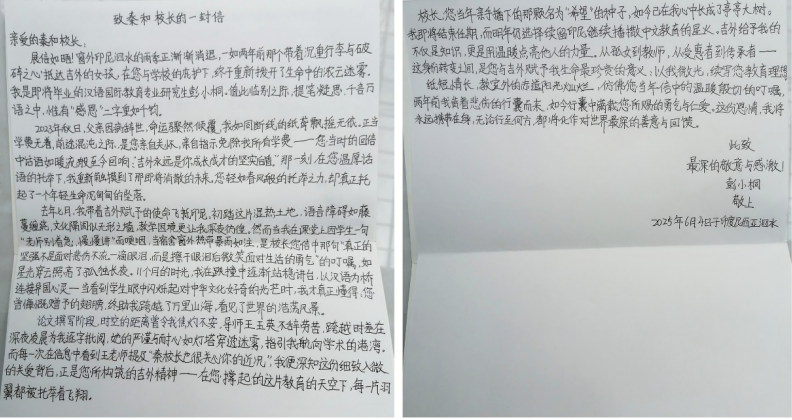 致秦和校长的一封信
亲爱的秦和校长:
展信如晤!窗外印尼泗水的雨季正渐渐消退,一如两年前那个带着沉重行李与破
碎之心抵达吉外的女孩,在您与学校的庇护下,终于重新拨开了生命中的浓云迷雾。
我是即将毕业的汉语国际教育专业研究生彭小桐。值此临别之际,提笔凝思,千言万
语之中,惟有“感恩”二字重如千钧。
2023年秋日,父亲因病辞世,命运骤然倾覆,我如同断线的纸鸢飘摇无依。正当
学费无着,前途混沌之际,是您亲自关怀,亲自指示,免除我所有学费——您当时的回信
中话语如暖流般至今回响:“吉外永远是你成长成才的坚实后盾。”那一刻,在您温厚话
语的托举下,我重新触摸到了那即将消散的未来。您轻如春风般的托举之力,却真正托
起了一个年轻生命沉甸甸的坠落。
去年七月,我带着吉外赋予的使命飞抵印尼,初踏这片湿热土地,语言障碍如藤
蔓缠病,文化隔阂似无形之墙,教学困境更让我深夜彷徨。然而当我在课堂上因学生一句
“老师别着急,慢慢讲”而哽咽,当宿舍窗外热带暴雨如注,是校长您信中那句“真正的
坚强不是面对悲伤不流一滴眼泪,而是擦干眼泪后微笑面对生活的勇气”的叮嘱,如
星光穿云照亮了孤独长夜。11个月的时光,我在跌撞中逐渐站稳讲台,以汉语为桥
连接异国心灵——当看到学生眼中闪烁起对中华文化好奇的光芒时,我才真正懂得:您
曾俯赐赠予的翅膀,终助我跨越了万里山海,看见了世界的浩荡风景。
论文撰写阶段,时空的距离曾令我焦灼不安,导师王玉英不辞劳苦,跨越时差在
深夜凌晨为我逐字批阅,她的严谨与耐心如灯塔穿透迷雾,指引我航向学术的港湾。
而每一次在信息中看到王老师提及“秦校长也很关心你的近况”,我便深知这份细致入微
的关爱背后,正是您所构筑的吉外精神——在您撑起的这片教育的天空下,每一片羽
翼都被托举着飞翔。
校长,您当年亲手播下的那颗名为“希望”的种子,如今已在我心中长成了亭亭大树。
我即将结束任期,而明年仍选择续留印尼继续播撒中文教育的星火。吉外给予我的
不仅是知识,更是用温暖点亮他人的力量。从孤女到教师,从受惠者到传承者——
这身份转变之间,是您与吉外赋予我生命最珍贵的意义,以我微光,续写您教育理想
纸短情长,教室外的赤道阳光灿烂,仿佛您当年信中的温暖殷切的叮嘱,
两年前我背着悲伤的行囊而来,如今行囊中满载您所赐的勇气与仁爱。这份恩情,我将
永远携带在身,无论行至何方,都将化作对世界最深的善意与回馈。
此致
最深的敬意与感激!
彭小桐
敬上
2025年6月4日于印度尼西亚泗水